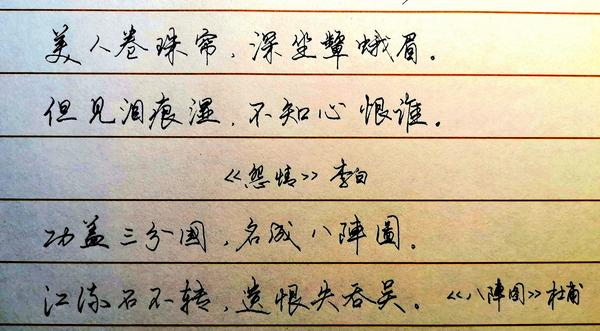 美人卷珠帘，深坐颦蛾眉。
但见泪痕湿，不知心恨谁。
《怨情》李白
功盖三分国，名成八陣圖。
江流石不转，遗恨失吞吴。《八陣图》杜甫